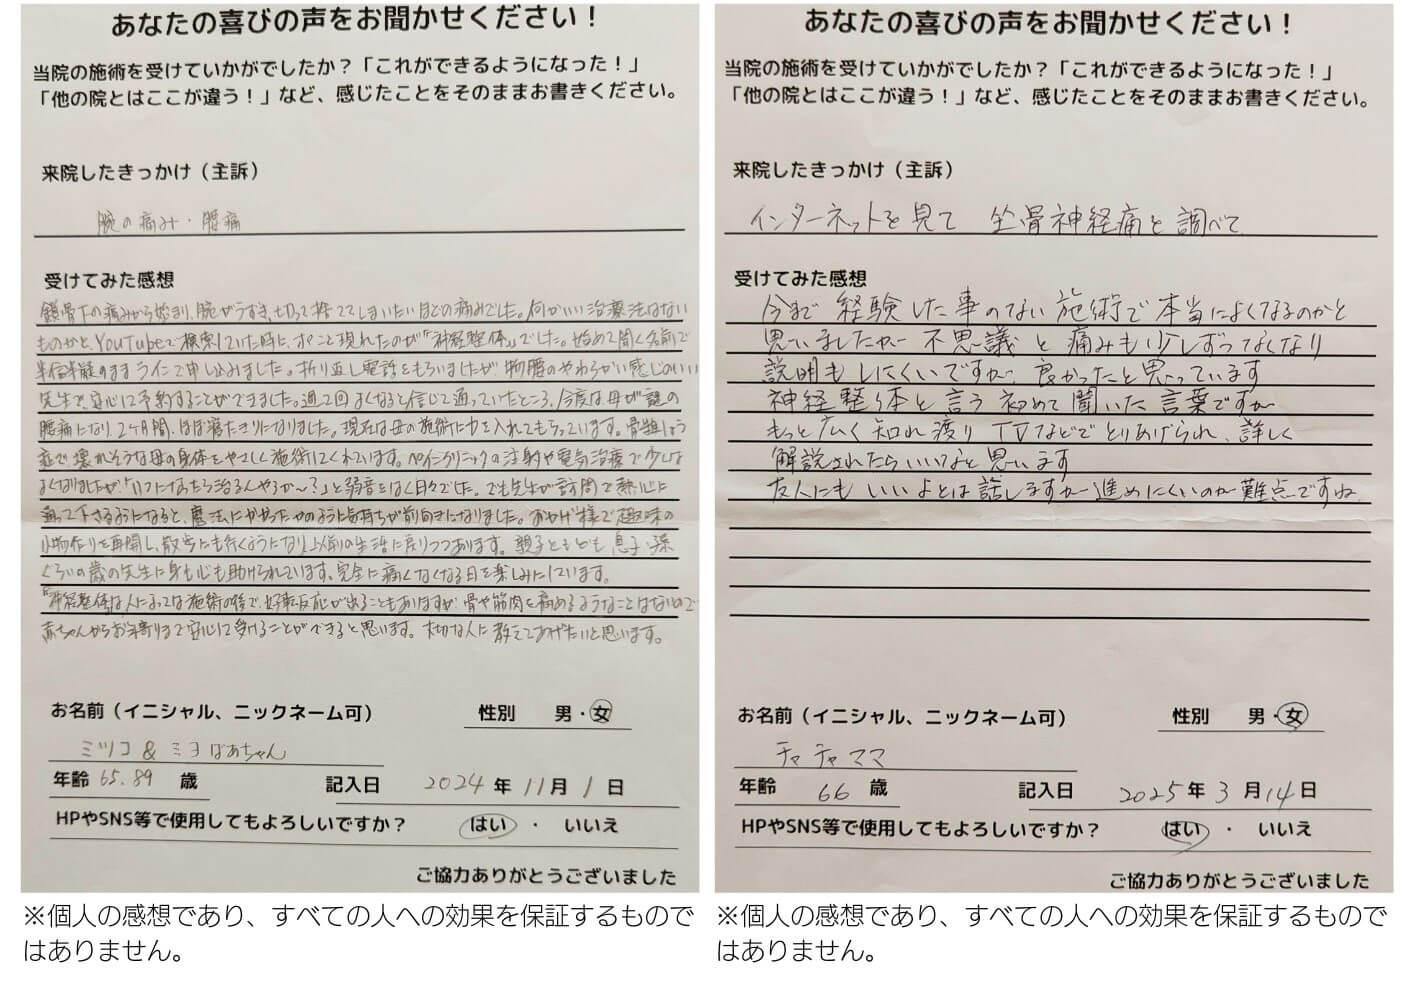 あなたの喜びの声をお聞かせください！
当院の施術を受けていかがでしたか？「これができるようになった！」
「他の院とはここが違う！」など、感じたことをそのままお書きください。
来院したきっかけ（主訴）
腕の痛み・腰痛
受けてみた感想
鎖骨下の痛みから始まり、腕がうずき、切って捨ててしまいたいほどの痛みでした。何かいい治療法はない
ものかと、YouTubeで検索していた時に、ポンと現れたのが『神経整体』でした。始めて聞く名前で
半信半疑のままラインで申し込みました。折り返し電話をもらいましたが、物腰のやわらかい感じのいい
先生で、安心して予約することができました。週2回よくなると信じて通っていたところ、今度は母が謎の
腰痛になり、2ヶ月間、ほぼ寝たきりになりました。現在は母の施術に力を入れてもらっています。骨粗しょう
症で壊れそうな母の身体をやさしく施術してくれています。ペインクリニックの注射や電気治療で少しは
よくなりましたが、「いつになったら治るんやろか〜？」と弱音をはく日々でした。でも先生が訪問で熱心に
通って下さるようになると、魔法にかかったかのように気持ちが前向きになりました。おかげ様で趣味の
小物作りを再開し、散歩にも行くようになり以前の生活に戻りつつあります。親子ともども息子・孫
ぐらいの歳の先生に身も心も助けられています。完全に痛くなくなる日を楽しみにしています。
『神経整体』は人によっては施術の後で、好転反応が出ることもありますが、骨や筋肉を痛めるようなことはないので
赤ちゃんからお年寄りまで安心して受けることができると思います。大切な人に教えてあげたいと思います。
お名前（イニシャル、ニックネーム可）
性別 男・女
ミツコ & ミヨばあちゃん
年齢 65.89 歳 記入日 2024 年 11 月 1 日
HPやSNS等で使用してもよろしいですか？ はい ・ いいえ
ご協力ありがとうございました
※個人の感想であり、すべての人への効果を保証するもので
はありません。
あなたの喜びの声をお聞かせください！
当院の施術を受けていかがでしたか？「これができるようになった！」
「他の院とはここが違う！」など、感じたことをそのままお書きください。
来院したきっかけ（主訴）
インターネットを見て 坐骨神経痛と調べて
受けてみた感想
今まで経験した事のない施術で本当によくなるのかと
思いましたが 不思議と痛みも少しずつなくなり
説明もしにくいですが、良かったと思っています
神経整体と言う初めて聞いた言葉ですが
もっと広く知れ渡りTVなどでとりあげられ、詳しく
解説されたらいいなと思います
友人にもいいよとは話しますが進めにくいのが難点ですね
お名前（イニシャル、ニックネーム可）
性別 男・女
チャチャママ
年齢 66 歳 記入日 2025 年 3 月 14 日
HPやSNS等で使用してもよろしいですか？ はい ・ いいえ
ご協力ありがとうございました
※個人の感想であり、すべての人への効果を保証するもので
はありません。